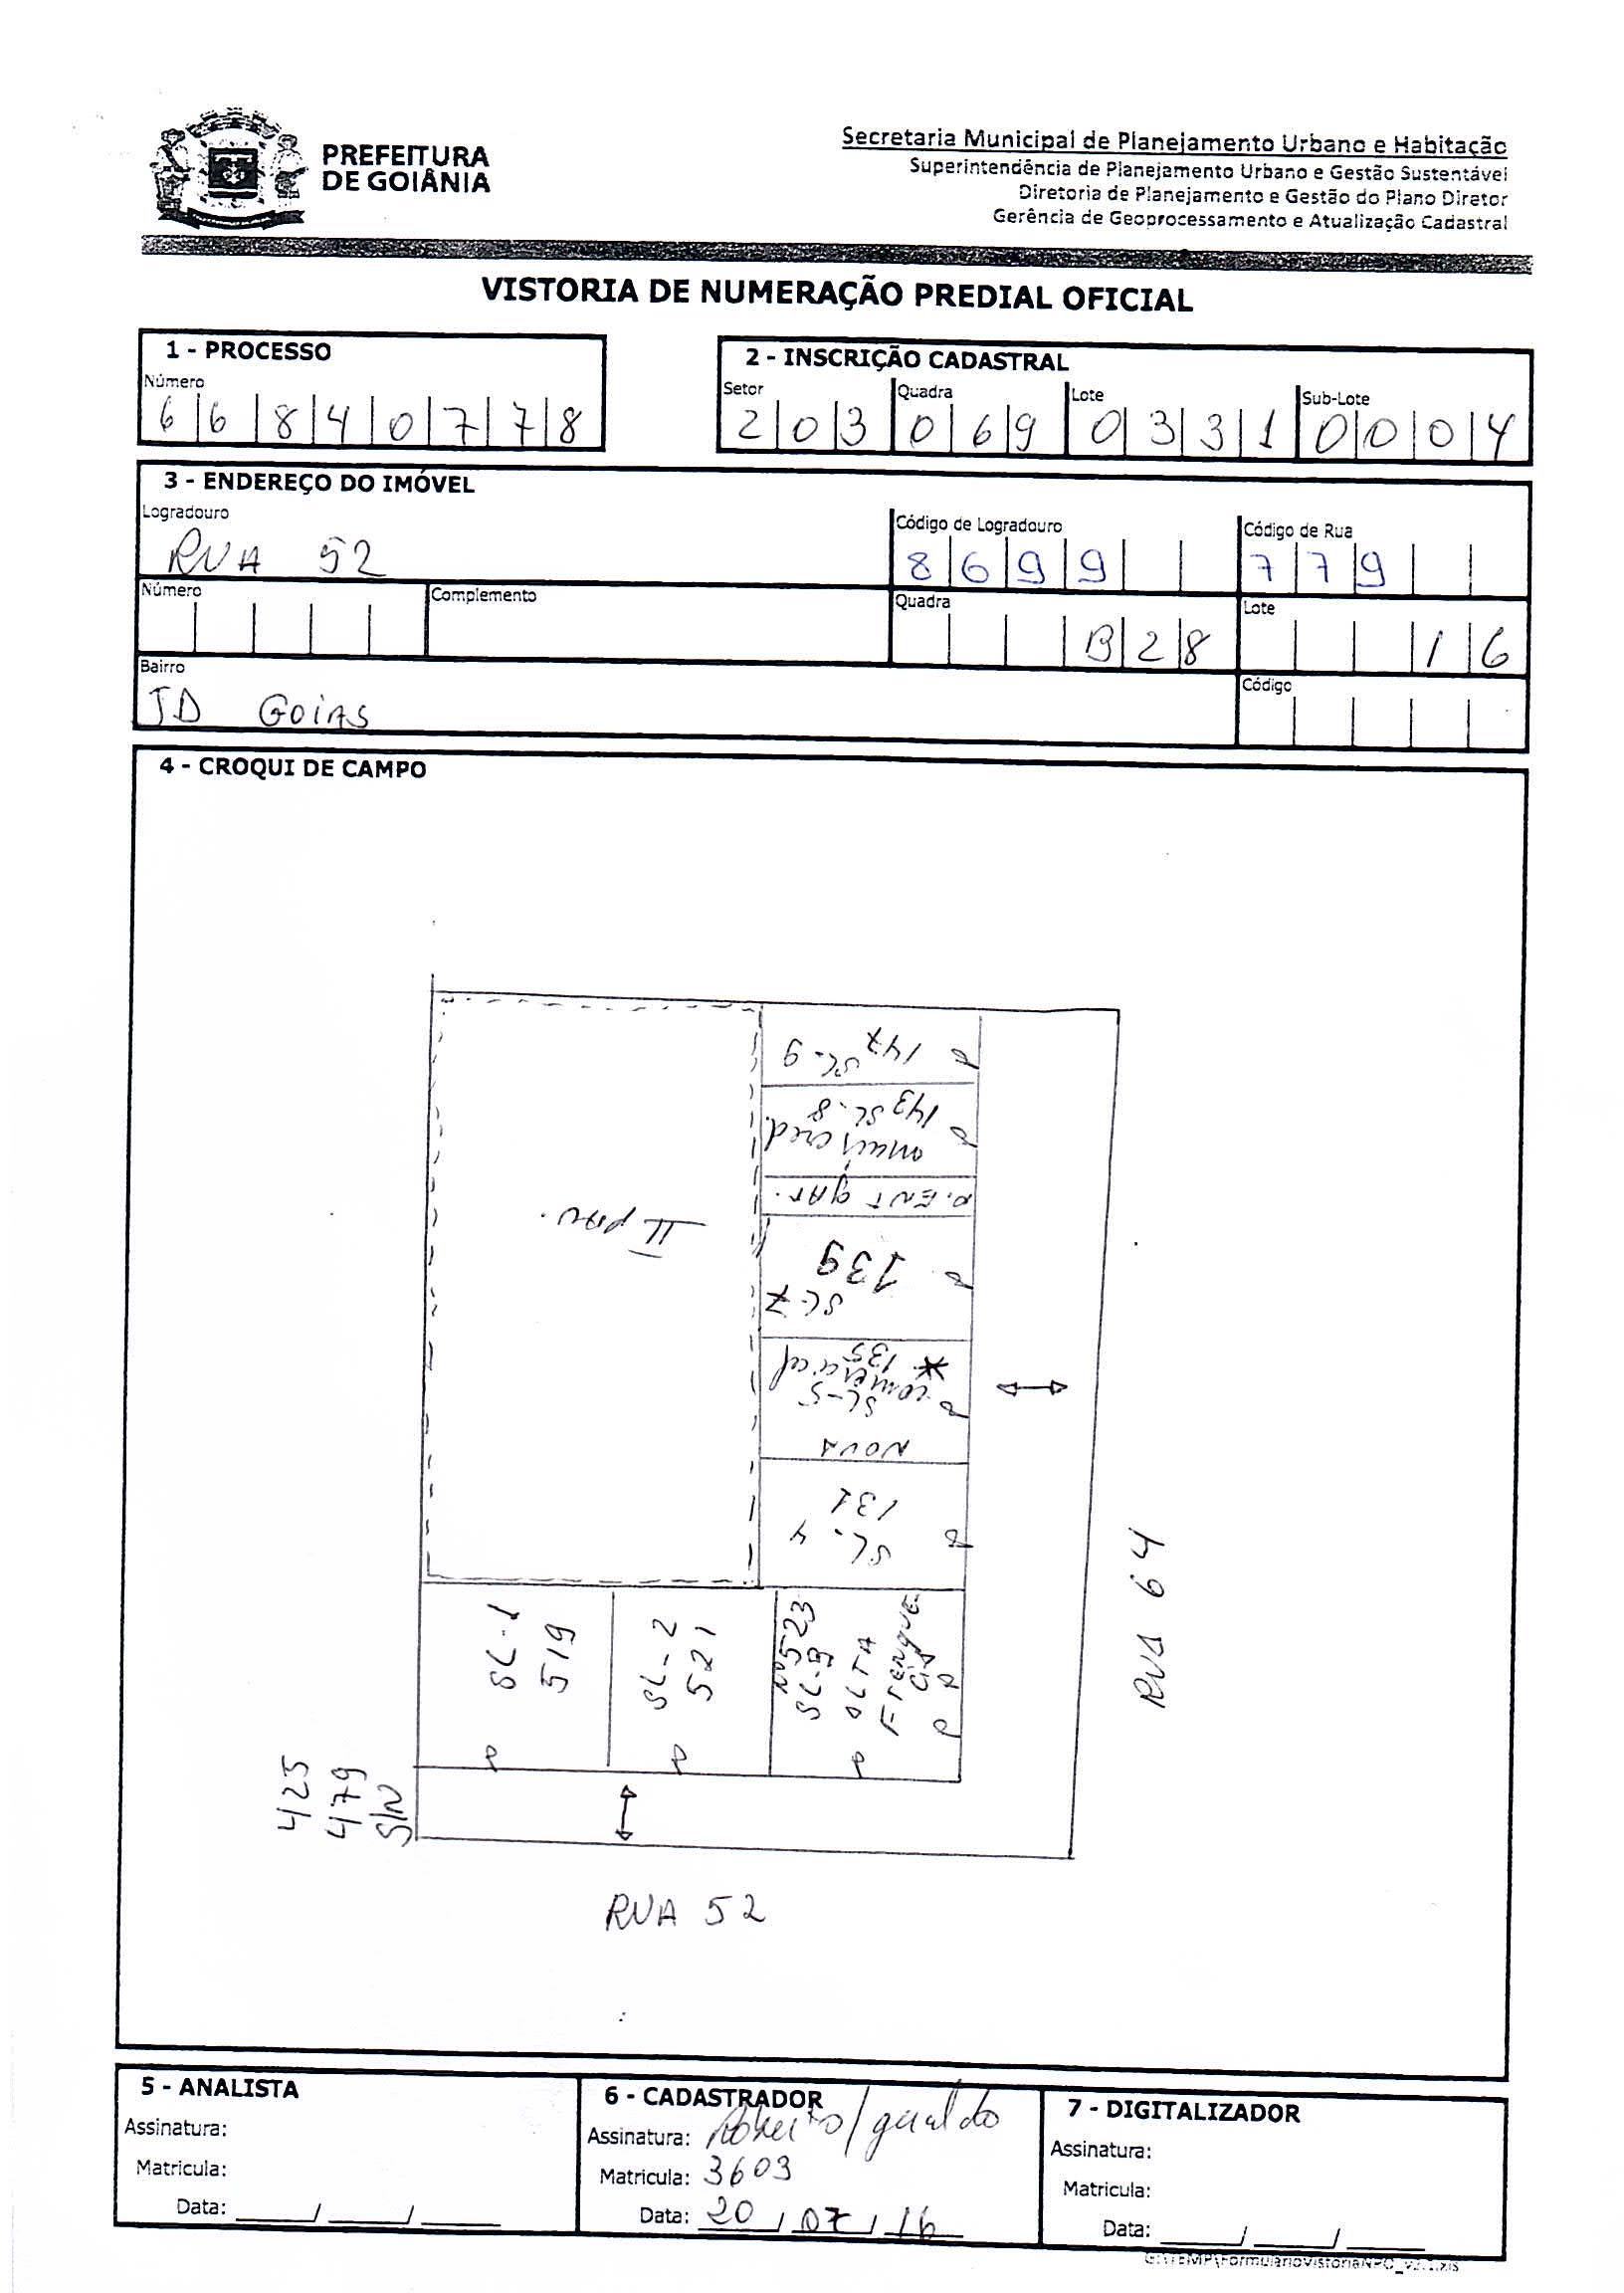 PREFEITURA
DE GOIÂNIA
Secretaria Municipal de Planejamento Urbano e Habitação
Superintendência de Planejamento Urbano e Gestão Sustentável
Diretoria de Planejamento e Gestão do Plano Diretor
Gerência de Geoprocessamento e Atualização Cadastral
VISTORIA DE NUMERAÇÃO PREDIAL OFICIAL
1 - PROCESSO
Número
6 6 8 4 0 7 7 8
2 - INSCRIÇÃO CADASTRAL
Setor Quadra Lote Sub-Lote
2 0 3 0 6 9 0 3 3 1 0 0 0 4
3 - ENDEREÇO DO IMÓVEL
Logradouro
RUA 52
Código de Logradouro
8 6 9 9
Código de Rua
7 7 9
Número
Complemento
Quadra
B 2 8
Lote
1 6
Bairro
JD GOIAS
Código
4 - CROQUI DE CAMPO
147
SL-9
143 SL-8
mais cred.
P. ENT gAR.
139
SL-7
* 135
comercial
SL-5
NOVA
131
SL. 4
II pav.
SL-1
519
SL-2
521
Nº 523
SL-3
423
479
S/N
RUA 64
RUA 52
5 - ANALISTA
Assinatura:
Matricula:
Data: ____/____/____
6 - CADASTRADOR
Assinatura: Roberto/geraldo
Matricula: 3603
Data: 20/07/16
7 - DIGITALIZADOR
Assinatura:
Matricula:
Data: ____/____/____